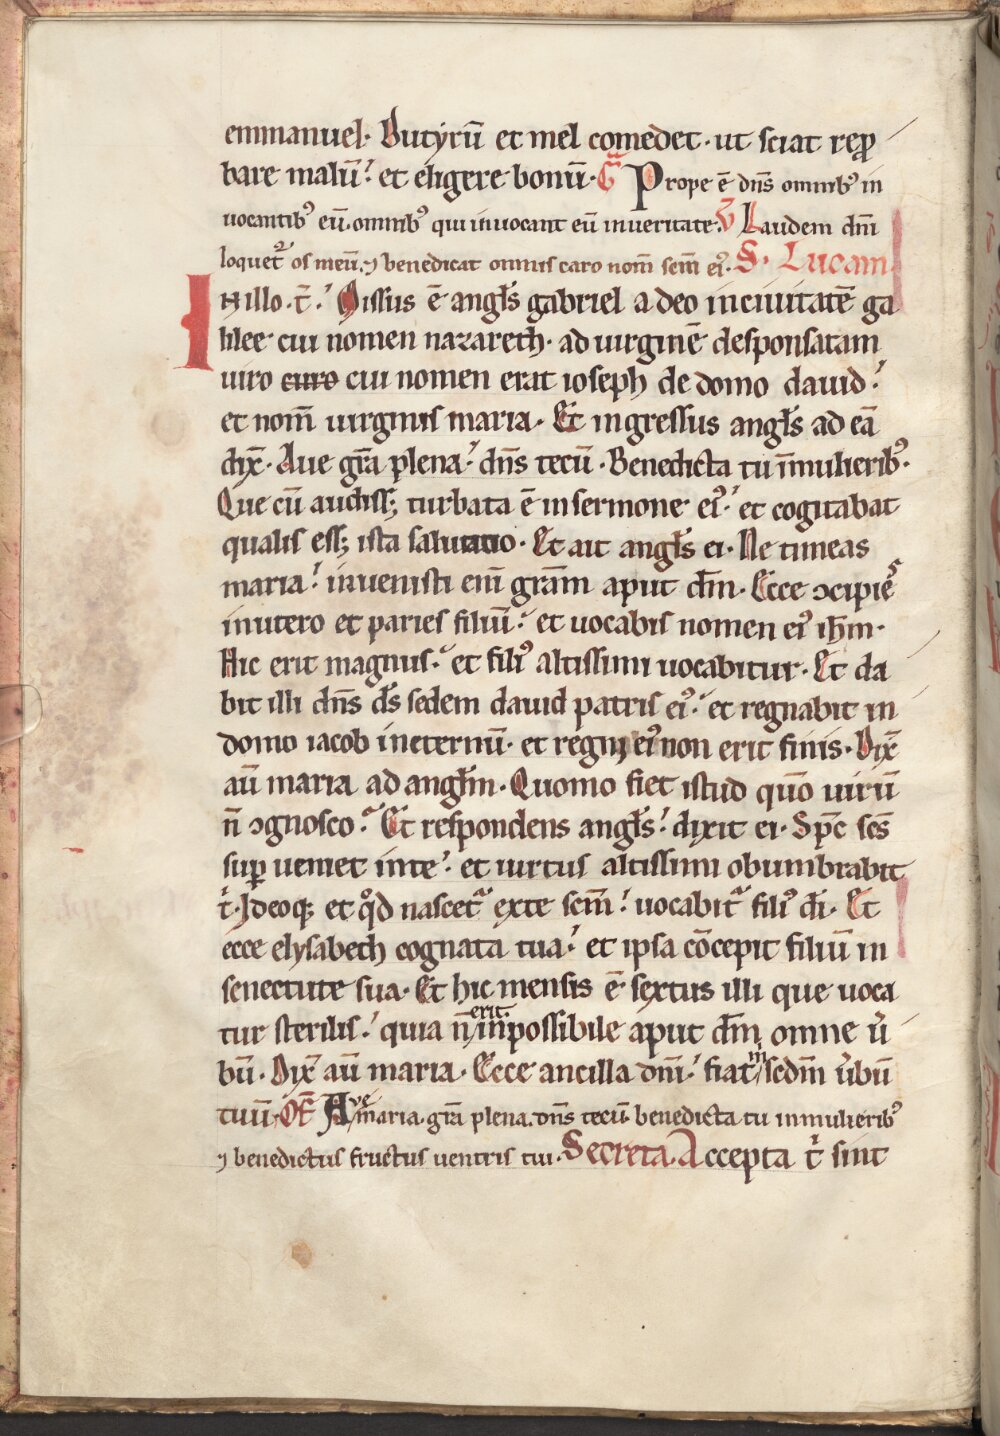 emmanuel. Butyrū et mel comedet. ut sciat rep̱ro
bare malū. et eligere bonū. G̅ Prope ē dn̄s omnibꝰ in
uocantibꝰ eū. omnibꝰ qui inuocant eū in ueritate. V̄ Laudem dn̄i
loquet᷑ os meū. ⁊ benedicat omnis caro nom̄ sc̄m eiꝰ. S. Lucam.
IN illo. t̄. Missus ē angl̄s gabriel a deo in ciuitatē ga
lilee cui nomen nazareth. ad uirginē desponsatam
uiro euro cui nomen erat ioseph de domo dauid.
et nom̄ uirginis maria. Et ingressus angl̄s ad eā
dix̄. Aue gr̄a plena. dn̄s tecū. Benedicta tu ī mulieribꝰ.
Que cū audiss; turbata ē in sermone eiꝰ. et cogitabat
qualis ess; ista salutatio. Et ait angl̄s ei. Ne timeas
maria. inuenisti eni̅ gr̄am aput dm̄. Ecce ↄcipiēs
in utero et paries filiū. et uocabis nomen eiꝰ ih̄m.
Hic erit magnus. et filiꝰ altissimi uocabitur. Et da
bit illi dn̄s ds̄ sedem dauid patris eiꝰ. et regnabit in
domo iacob in eternū. et regni eiꝰ non erit finis. Dix̄
aū maria ad angl̄m. Quomo fiet istud quō uirū
n̄ ↄgnosco. Et respondens angl̄s. dixit ei. Sp̄c sc̄s
suꝑ ueniet in te. et uirtus altissimi obumbrabit
t̄. Ideoqꝫ et qd̊ nascet᷑ ex te sc̄m. uocabit᷑ filiꝰ di̅. Et
ecce elysabeth cognata tua. et ipsa cōcepit filiū in
senectute sua. Et hic mensis ē sextus illi que uoca
tur sterilis. quia n̄ erit inpossibile aput dm̄ omne u̅
bū. Dix̄ aū maria. Ecce ancilla dn̄i. fiat m̄ sedm̄ u̅bū
tuū. OF̄ Aue maria. gr̄a plena. dn̄s tecū benedicta tu in mulieribꝰ
⁊ benedictus fructus uentris tui. Secreta. Accepta t̄ sint